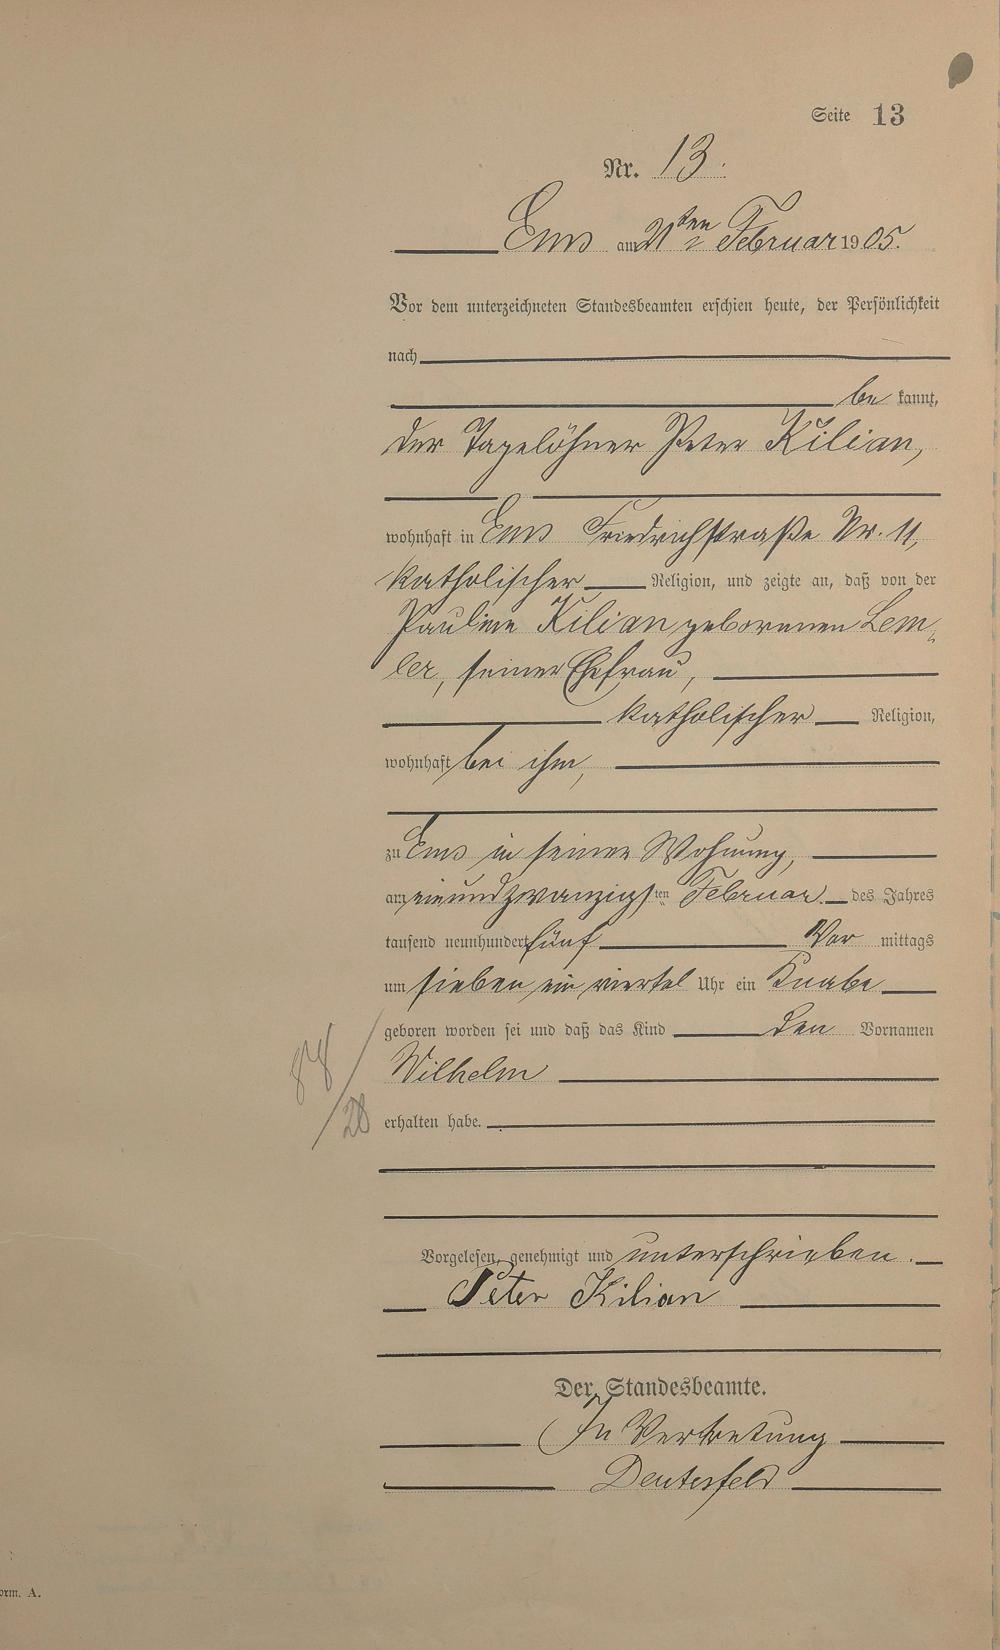 Seite 13
Nr. 13.
Ems am 21ten Februar 1905.
Vor dem unterzeichneten Standesbeamten erschien heute, der Persönlichkeit
nach
be kannt,
der Tagelöhner Peter Kilian,
wohnhaft in Ems Friedrichstraße Nr. 11,
katholischer Religion, und zeigte an, daß von der
Pauline Kilian geborenen Lem-
ler, seiner Ehefrau,
katholischer Religion,
wohnhaft bei ihm,
zu Ems in seiner Wohnung,
am einundzwanzigsten Februar des Jahres
tausend neunhundert fünf Vor mittags
um sieben ein viertel Uhr ein Knabe
geboren worden sei und daß das Kind den Vornamen
Wilhelm
erhalten habe.
Vorgelesen, genehmigt und unterschrieben.
Peter Kilian
Der Standesbeamte.
In Vertretung
orm. A.